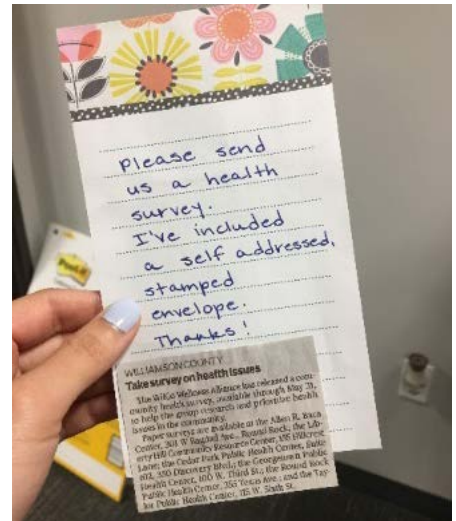 Please send
us a health
survey.
I've included
a self addressed,
stamped
envelope.
Thanks!
Post-it
WILLIAMSON COUNTY
Take survey on health issues
The WilCo Wellness Alliance has released a com-
munity health survey, available through May 31,
to help the group research and prioritize health
issues in the community.
Paper surveys are available at the Allen R. Baca
Center, 301 W Bagdad Ave., Round Rock; the Lib-
erty Hill Community Resource Center, 155 Hillcrest
Lane; the Cedar Park Public Health Center, Suite
102, 350 Discovery Blvd.; the Georgetown Public
Health Center, 100 W. Third St.; the Round Rock
Public Health Center, 355 Texas Ave.; and the Tay-
lor Public Health Center, 115 W. Sixth St.